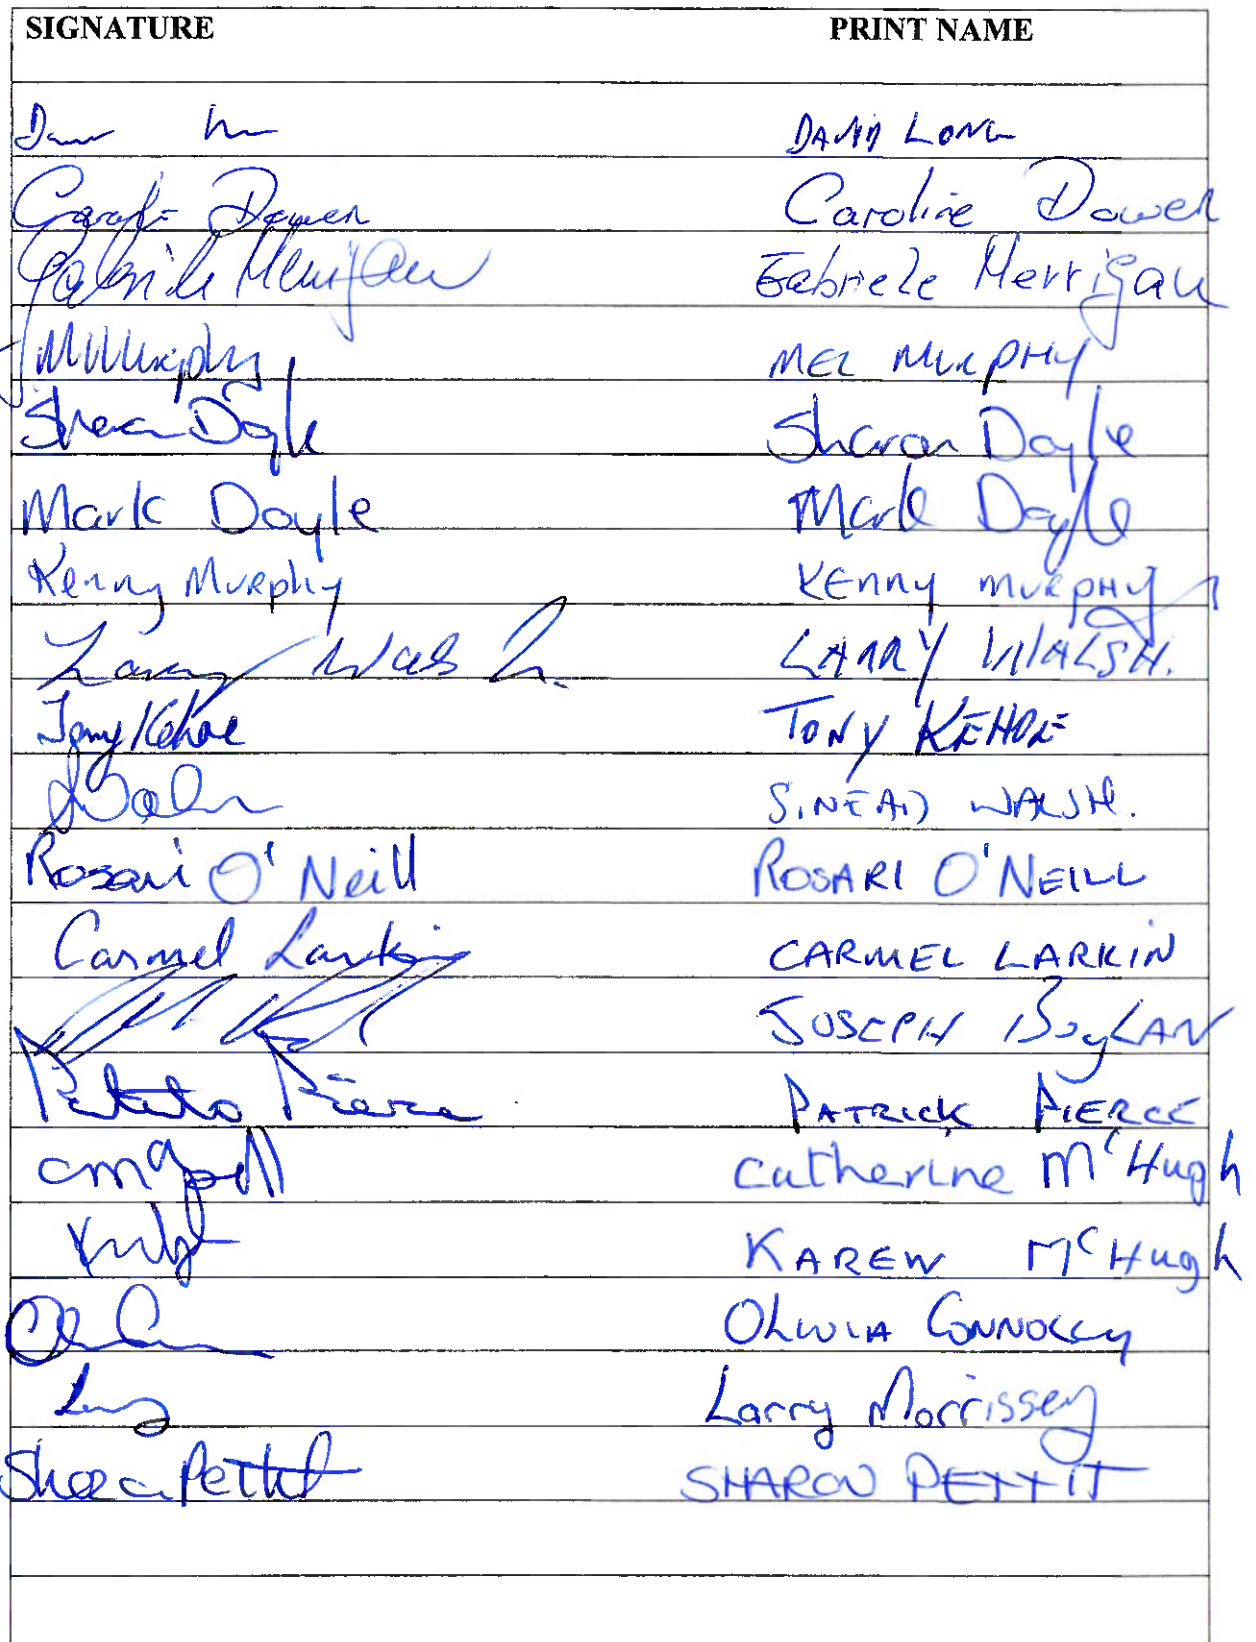 SIGNATURE PRINT NAME
DAVID LONG
Dower Caroline Dower
Gabriele Merrigan Gabriele Merrigan
MMurphy MEL MURPHY
Sharon Doyle Sharon Doyle
Mark Doyle Mark Doyle
Kenny Murphy KENNY MURPHY
Larry Walsh. LARRY WALSH.
Tony Kehoe TONY KEHOE
SINEAD WALSH.
Rosari O'Neill ROSARI O'NEILL
Carmel Larkin CARMEL LARKIN
JOSEPH BOYLAN
Pierce PATRICK PIERCE
Catherine McHugh
KAREN McHugh
OLIVIA CONNOLLY
Larry Larry Morrissey
Sharon Pettit SHARON PETTIT